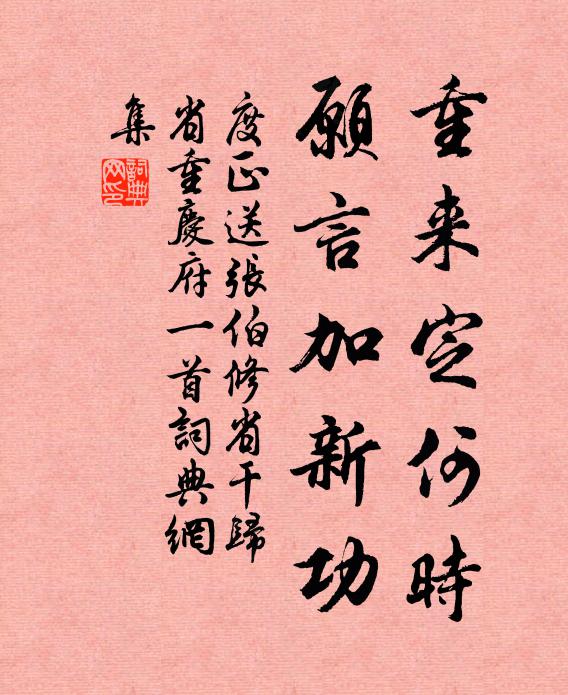 重来定何時
願言加新功
度正送張伯修省干歸
省重慶府一首詞典網
集
詞典網印